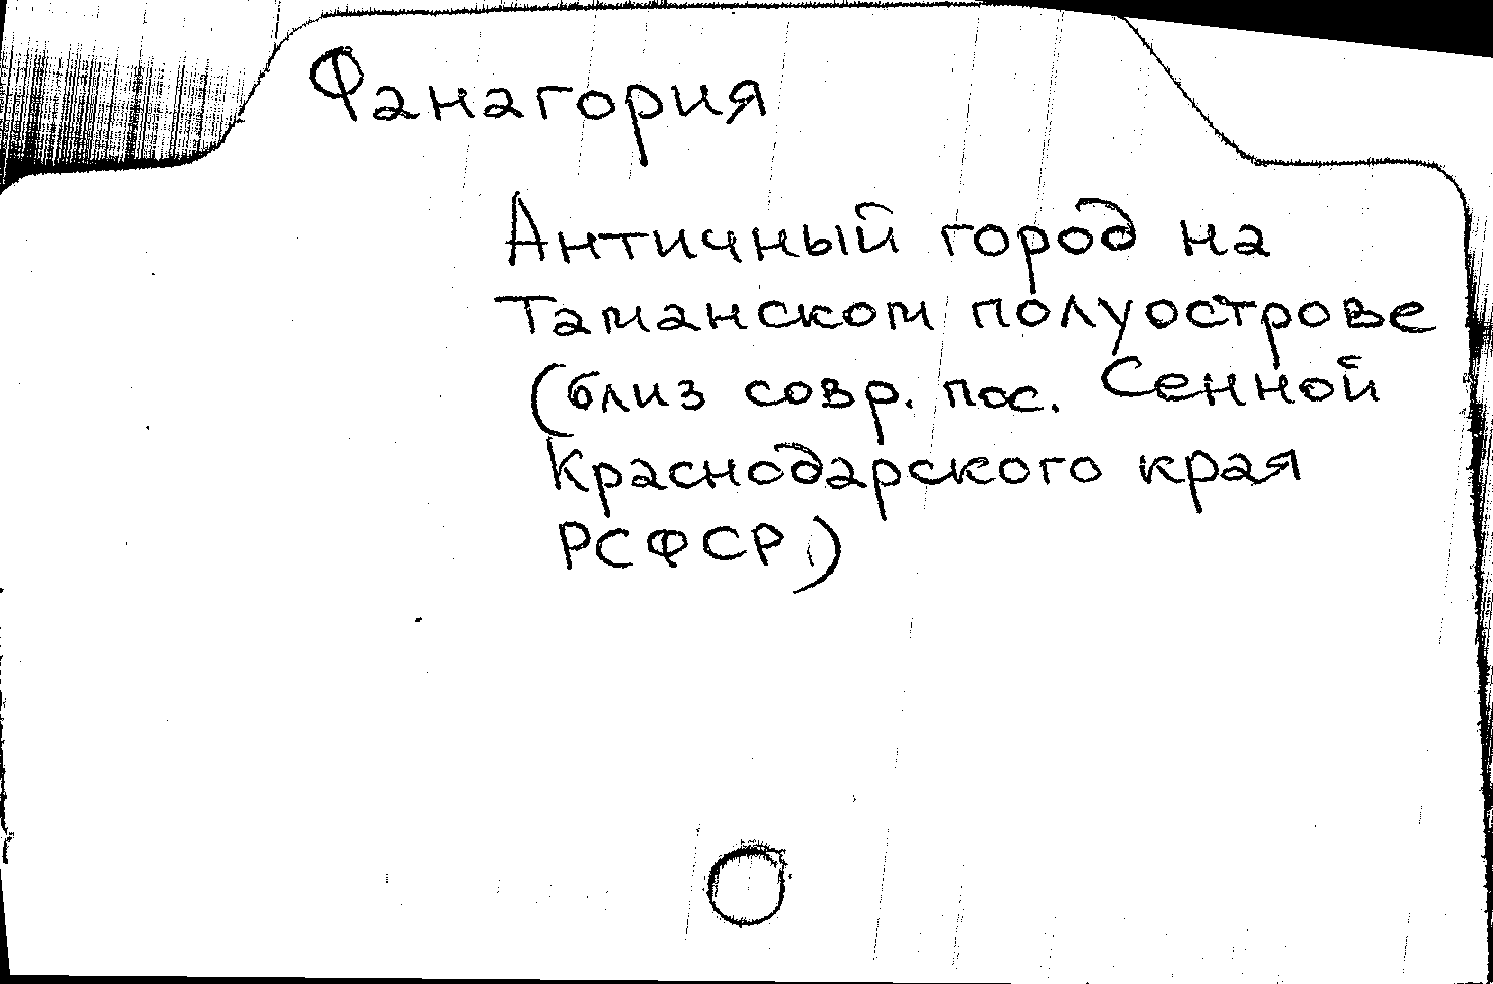 Фанагория
Античный город на
Таманском полуострове
(близ совр. пос. Сенной
Краснодарского края
РСФСР)